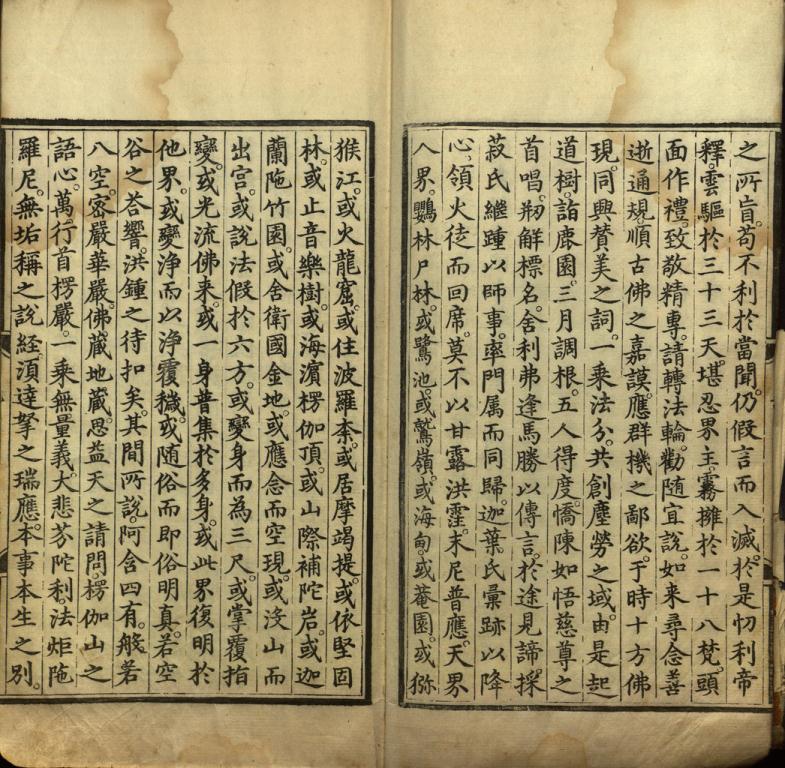 之所盲。苟不利於當聞。仍假言而入滅。於是忉利帝
釋。雲驅於三十三天。堪忍界主。霧擁於一十八梵。頭
面作禮。致敬精專。請轉法輪。勸随宜說。如来尋念善
逝通規。順古佛之嘉謨。應群機之鄙欲。于時十方佛
現。同興賛美之詞。一乘法分。共創塵勞之域。由是起
道樹。詣鹿園。三月調根。五人得度。憍陳如悟慈尊之
首唱。剏解標名。舍利弗逢馬勝以傳言。於途見諦。採
菽氏繼踵以師事。率門属而同歸。迦葉氏彙跡以降
心。領火徒而回席。莫不以甘露洪霔。末尼普應。天界
人界。鸚林尸林。或鷺池。或鷲嶺。或海甸。或菴園。或獼
猴江。或火龍窟。或住波羅柰。或居摩竭提。或依堅固
林。或止音樂樹。或海濵楞伽頂。或山際補陀岩。或迦
蘭陁竹園。或舍衛國金地。或應念而空現。或没山而
出宫。或說法假於六方。或變身而為三尺。或掌覆指
變。或光流佛来。或一身普集於多身。或此界復明於
他界。或變浄而以浄覆穢。或随俗而即俗明真。若空
谷之荅響。洪鍾之待扣矣。其間所說。阿含四有。般若
八空。宻嚴華嚴。佛蔵地蔵。思益天之請問。楞伽山之
語心。萬行首楞嚴。一乘無量義。大悲芬陀利。法炬陁
羅尼。無垢稱之說經。湏達拏之瑞應。本事本生之别。